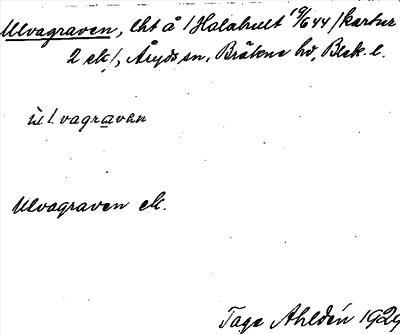 Ulvagraven, lht å /Halahult 10/6 44/ kartur
2 ek/, Åryds sn, Bräkne hd, Blek. l.
ùl.vagraven
Ulvagraven ek.
Tage Ahldén 1929